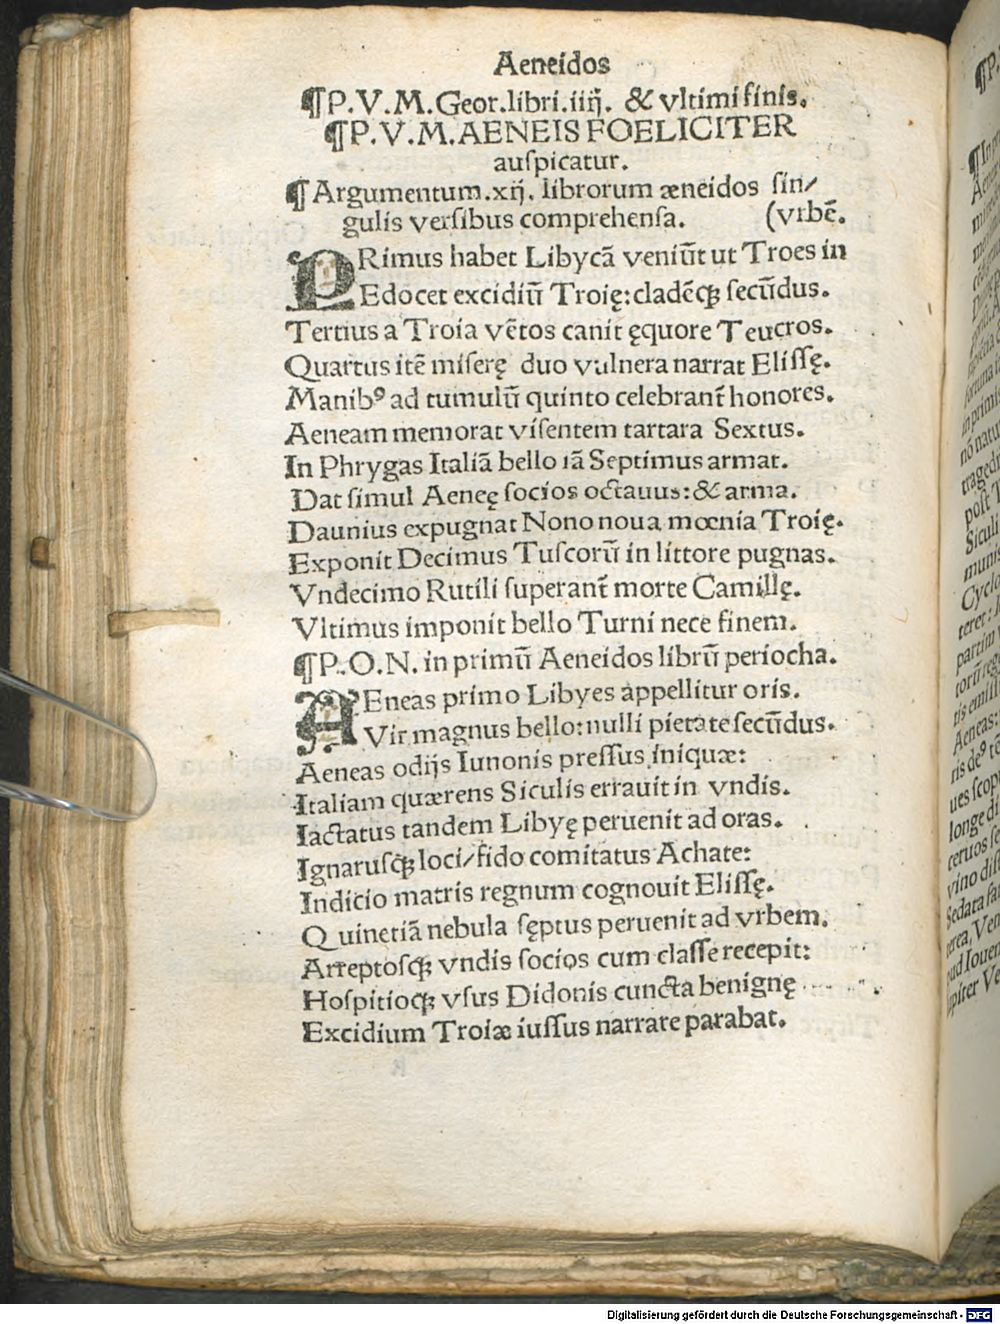 Aeneidos
¶P.V.M.Geor.libri.iiij. & vltimi finis.
¶P.V.M.AENEIS FOELICITER
auſpicatur.
¶Argumentum.xij. librorum æneidos ſin/
gulis verſibus comprehenſa. (vrbē.
PRimus habet Libycā veniūt ut Troes in
Edocet excidiū Troię:cladēqꝫ ſecūdus.
Tertius a Troia vētos canit ęquore Teucros.
Quartus itē miſerę duo vulnera narrat Eliſſę.
Manibꝰ ad tumulū quinto celebrant̄ honores.
Aeneam memorat viſentem tartara Sextus.
In Phrygas Italiā bello iā Septimus armat.
Dat ſimul Aeneę ſocios octauus:& arma.
Daunius expugnat Nono noua mœnia Troię.
Exponit Decimus Tuſcorū in littore pugnas.
Vndecimo Rutili ſuperant̄ morte Camillę.
Vltimus imponit bello Turni nece finem.
¶P.O.N. in primū Aeneidos librū periocha.
AEneas primo Libyes appellitur oris.
Vir magnus bello:nulli pietate ſecūdus.
Aeneas odijs Iunonis preſſus iniquæ:
Italiam quærens Siculis errauit in vndis.
Iactatus tandem Libyę peruenit ad oras.
Ignaruſqꝫ loci/fido comitatus Achate:
Indicio matris regnum cognouit Eliſſę.
Quinetiā nebula ſęptus peruenit ad vrbem.
Arreptoſqꝫ vndis ſocios cum claſſe recepit:
Hoſpitioqꝫ vſus Didonis cuncta benignę
Excidium Troiæ iuſſus narrare parabat.
Digitalisierung gefördert durch die Deutsche Forschungsgemeinschaft - DFG